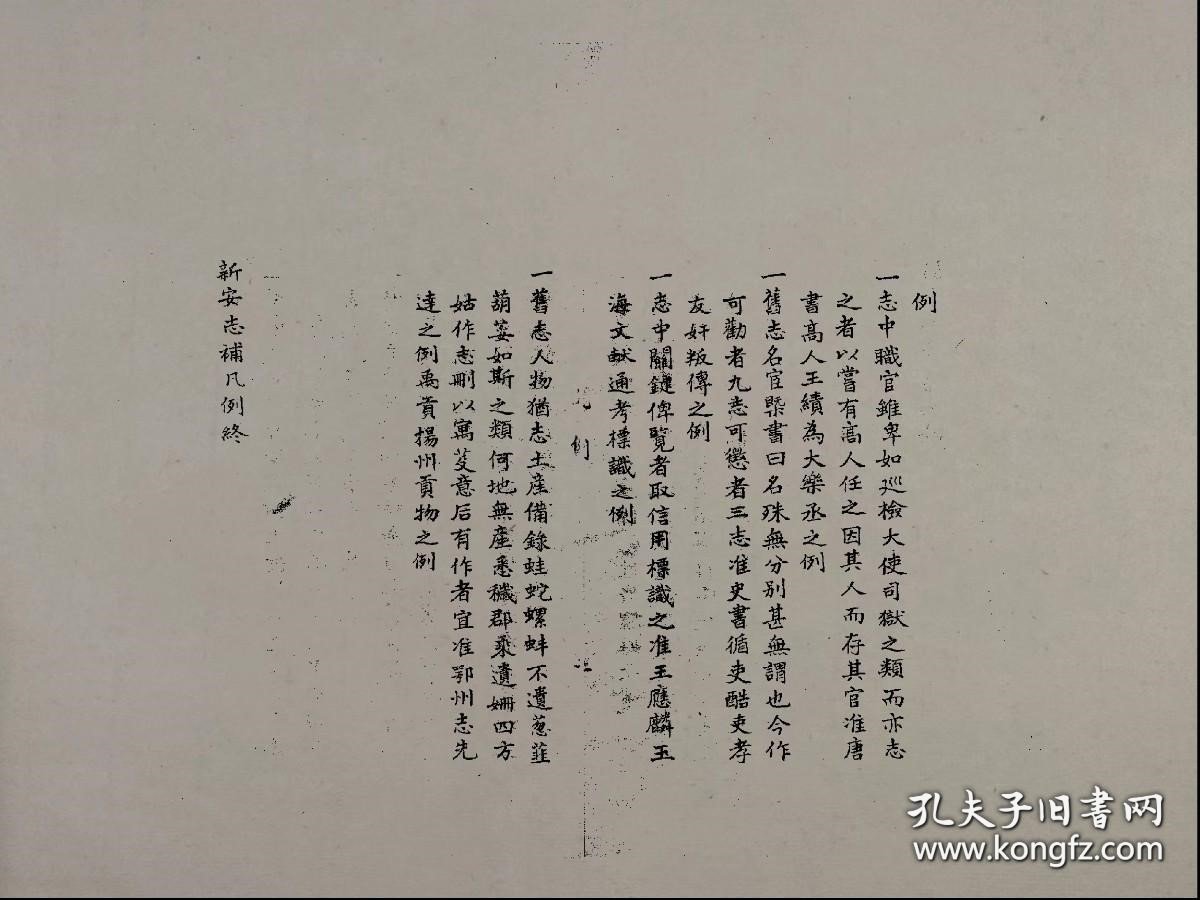 例
一志中職官雖卑如巡檢大使司獄之類而亦志
之者以嘗有高人任之因其人而存其官准唐
書高人王績為大樂丞之例
一舊志名宦槩書曰名殊無分別甚無謂也今作
可勸者九志可懲者三志准史書循吏酷吏孝
友奸叛傳之例
一志中關鍵俾覽者取信用標識之准王應麟玉
海文献通考標識之例
例
一舊志人物猶志土産備錄蛙蛇螺蚌不遺葱韮
葫荽如斯之類何地無產悉穢郡乘遺姍四方
姑作志刪以寓芟意后有作者宜准鄂州志先
達之例禹貢揚州貢物之例
新安志補凡例終
孔夫子旧书网
www.kongfz.com